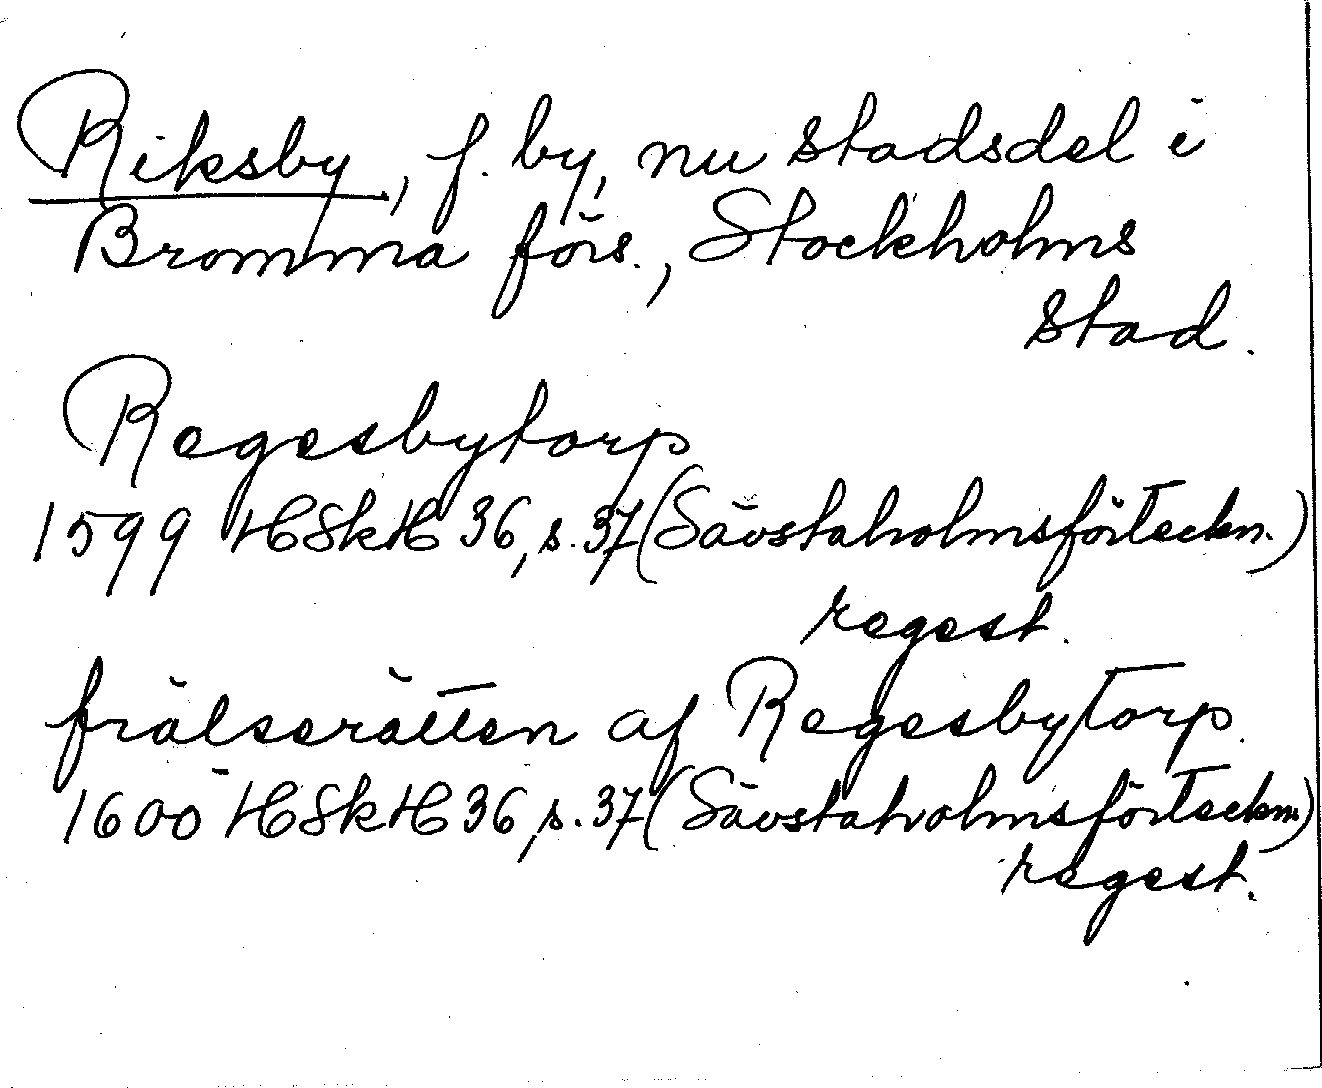 Riksby, f. by, nu stadsdel i
Bromma förs., Stockholms
stad.
Regesbytorp
1599 HSkH 36, s. 37 (Sävstaholmsförteckn.)
regest.
frälserätten af Regesbytorp.
1600 HSkH 36, s. 37 (Sävstaholmsförteckn.)
regest.